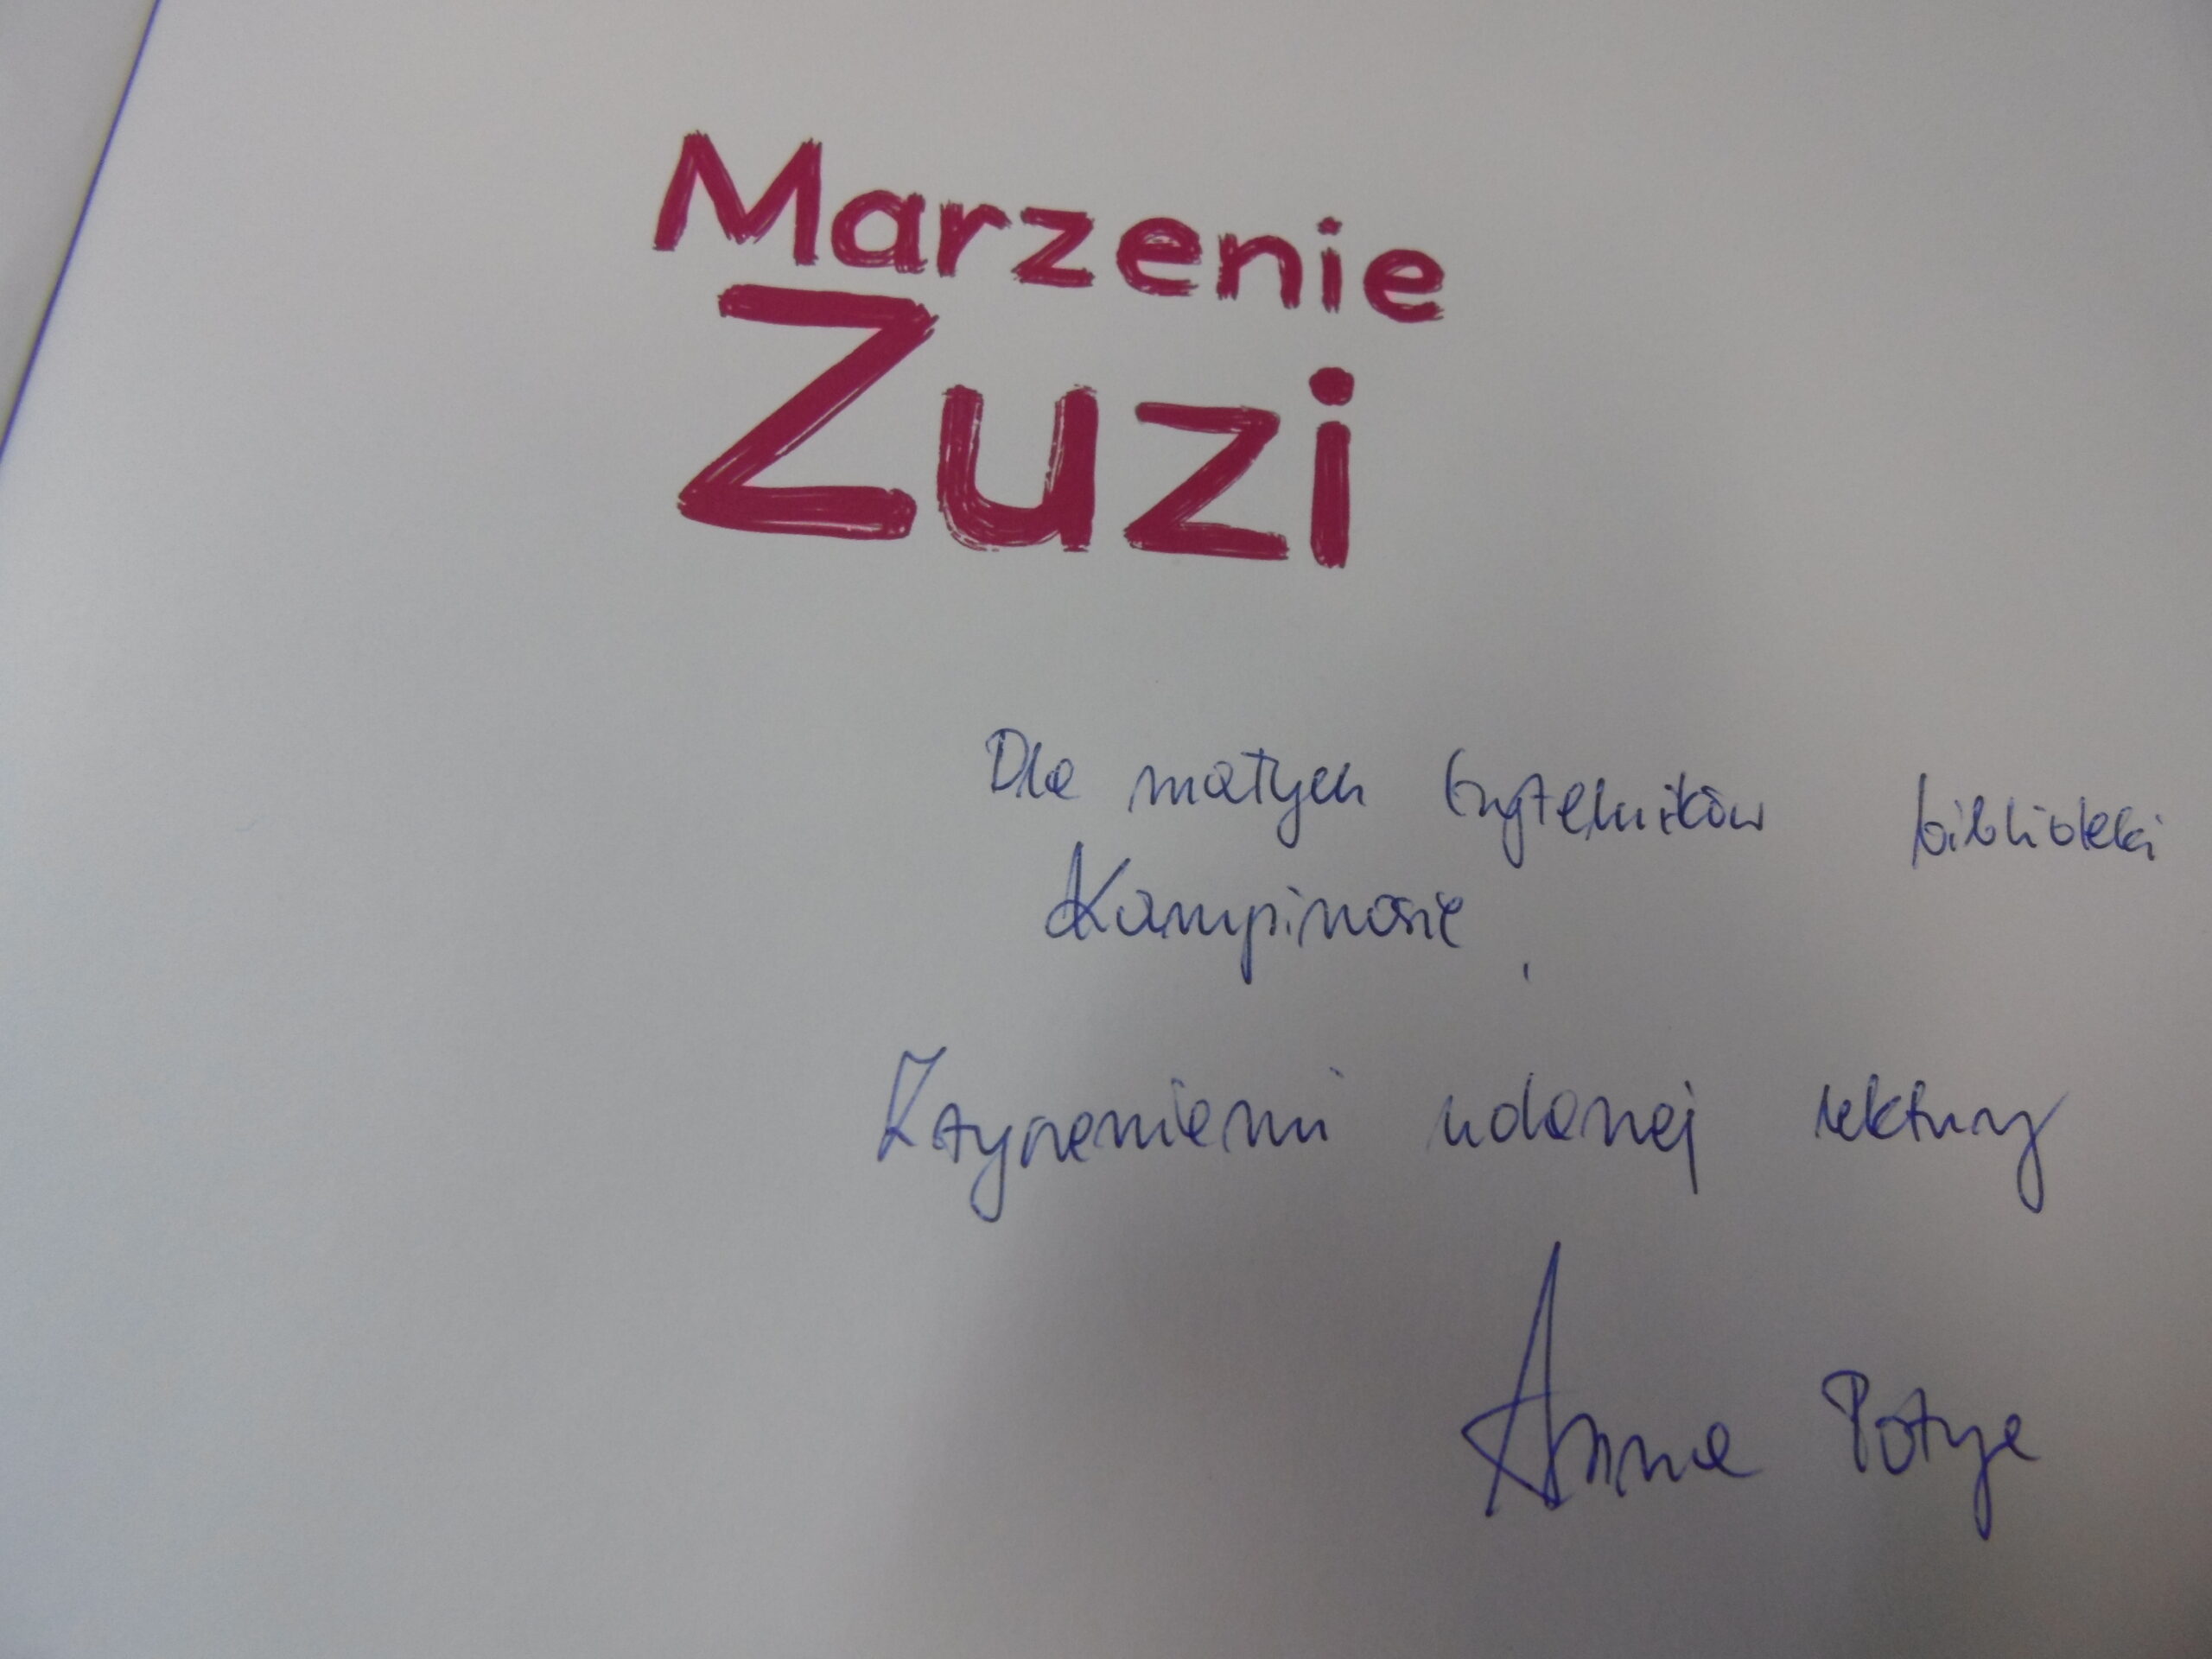 Marzenie
Zuzi
Dla małych czytelników biblioteki
Kampinosie
Z życzeniami udanej lektury
Anna